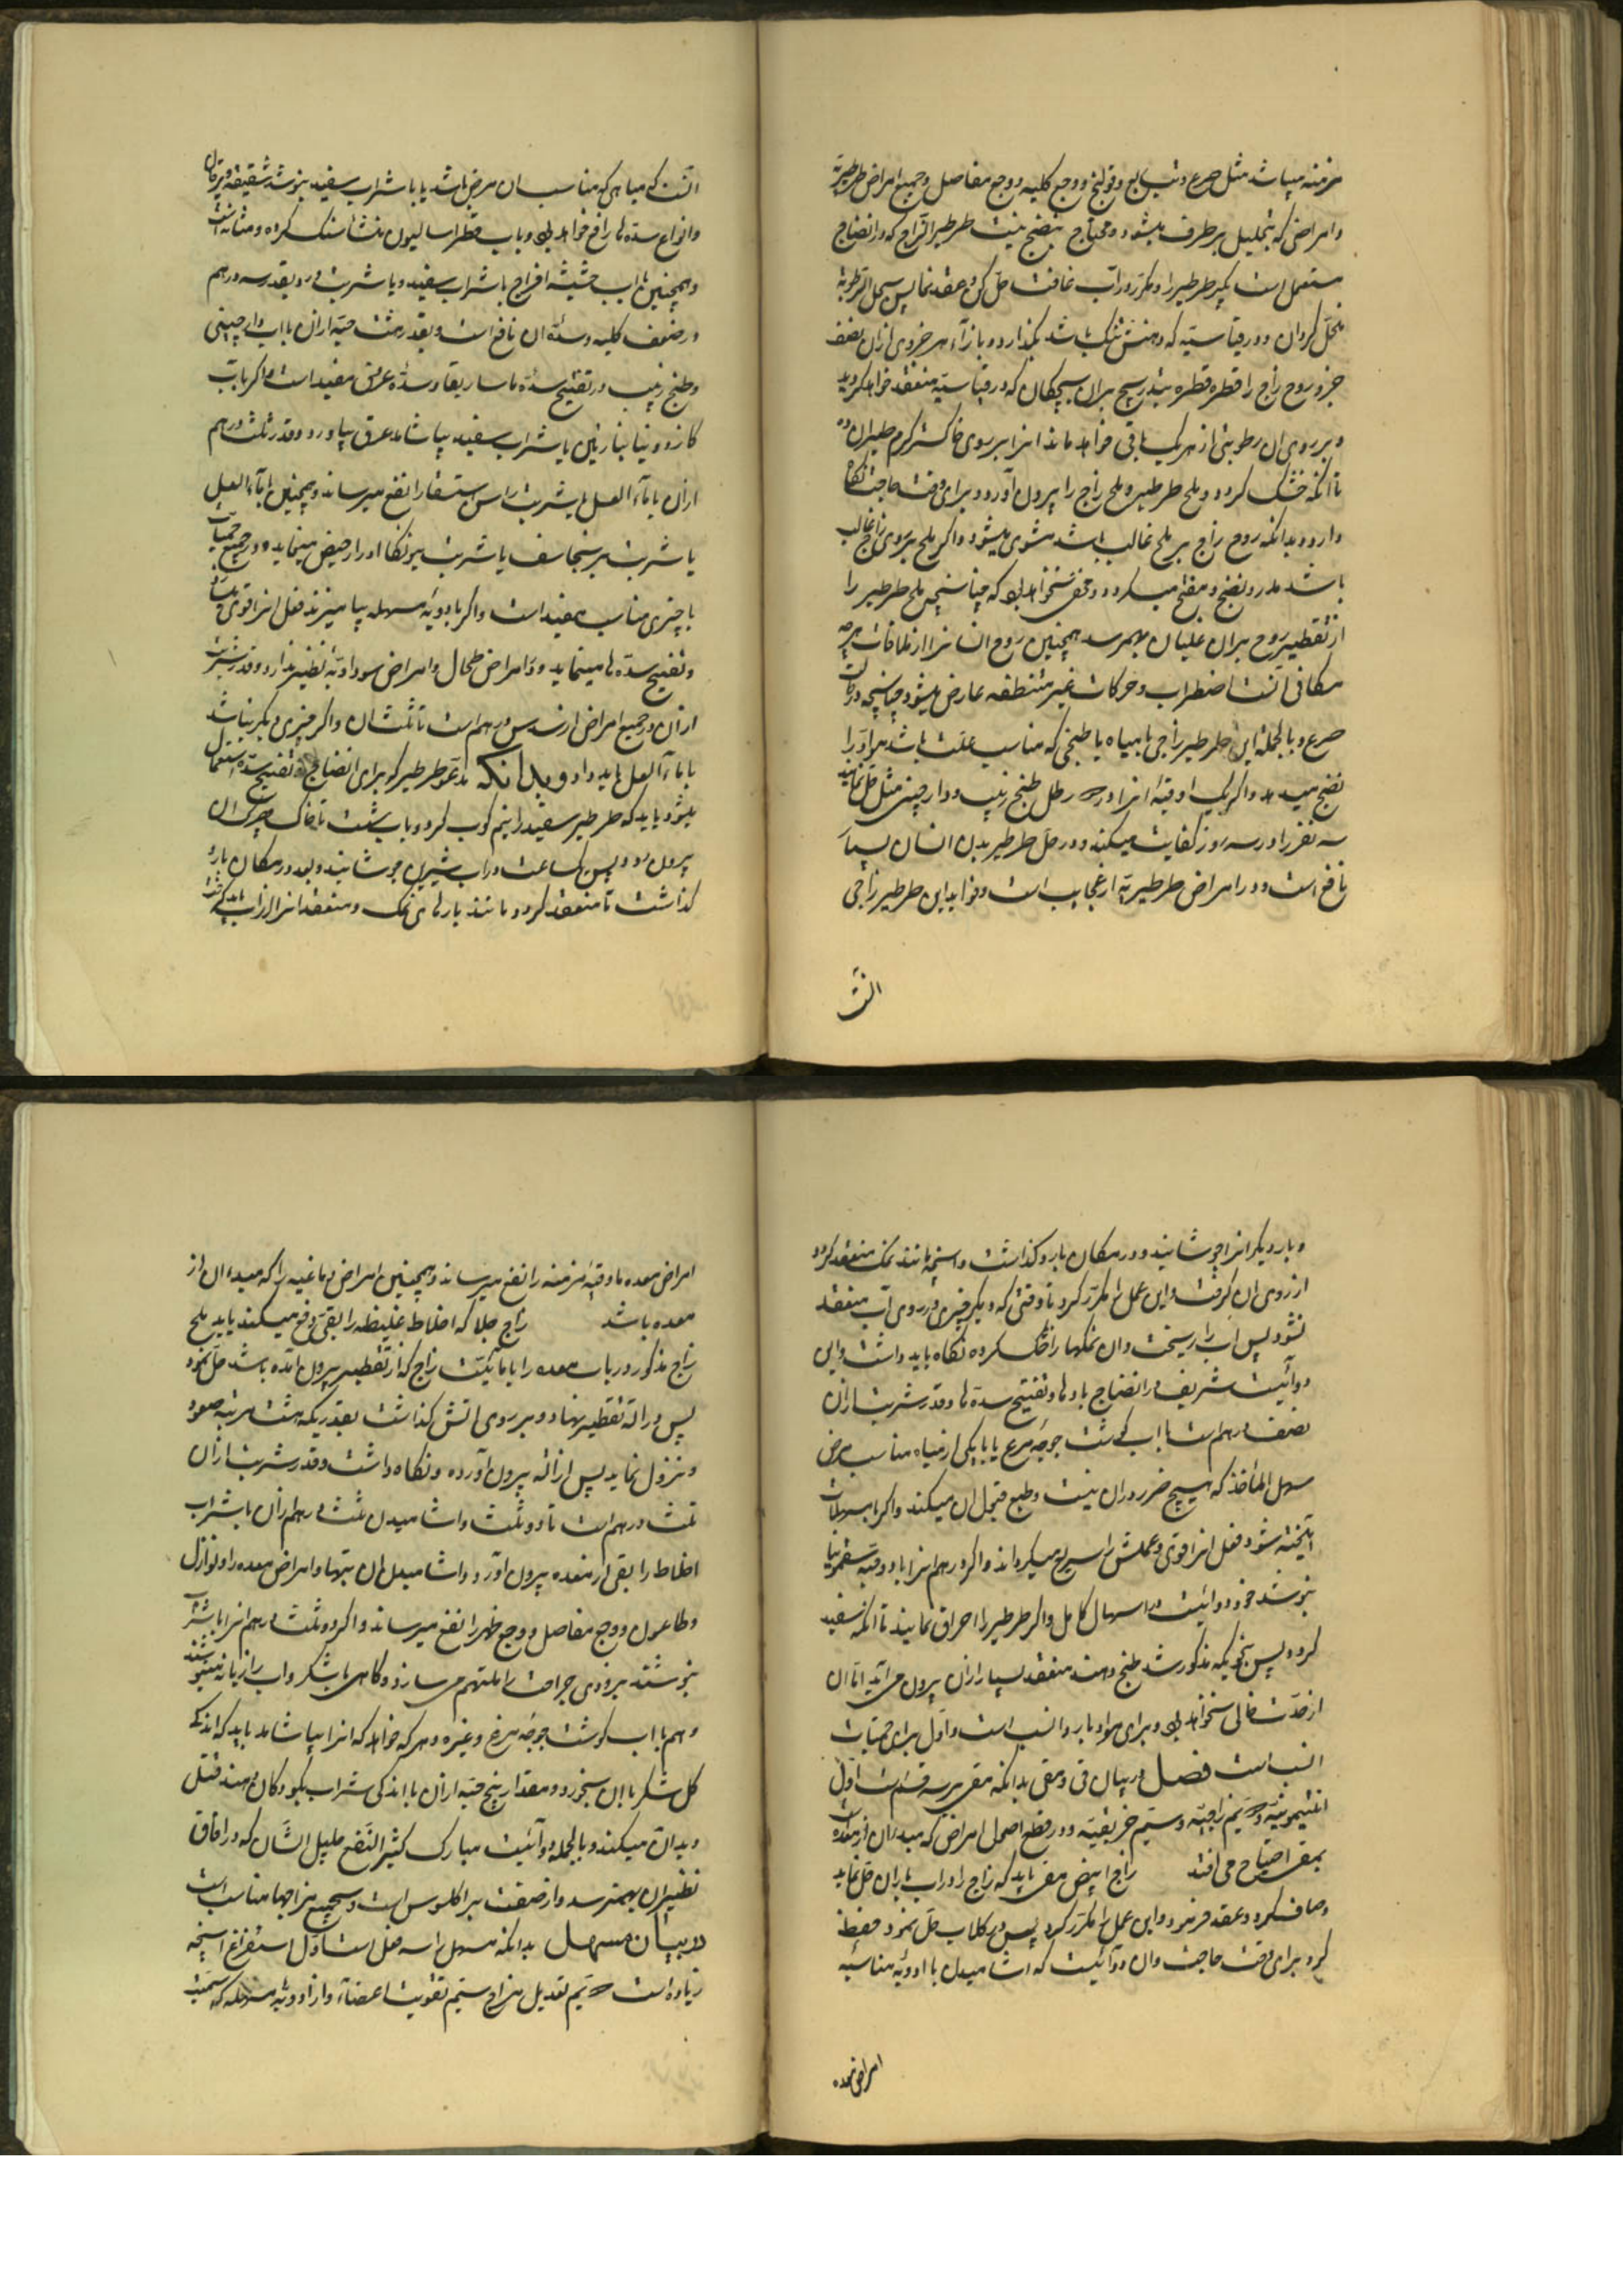 مزمنه میباشد مثل صرع و تب ربع و قولنج و وجع کلیه و وجع مفاصل و جمیع امراض طرطیریة
وامراضی که بتحلیل برطرف میشود و محتاج بنضج نیست طرطیر الزاج که در انضاج
مستعمل است بگیر طرطیر را و مکرر در آب غافث حل کن و عقد نما پس سهل الرطوبة
منحل گردان و در قیاسیته که دهنش تنگ باشد بگذار و بازآء هر جزوی ازان نصف
جزو روح زاج را قطره قطره بتدریج بران بچکان که در قیاسیته منعقد خواهد گردید
و بر روی ان رطوبتی از هر یک باقی خواهد ماند انرا بر روی خاکستر گرم طیران ده
تا انکه خشک گردد و ملح طرطیر و ملح زاج را بیرون آورد و برای وقت حاجت نگاه
دارد و بدانکه روح زاج بر ملح غالب باشد مشوی میشود و اگر ملح بر روی زاج غالب
باشد مدر و نضج و مفتح میگردد و محرق نخواهد بود که چنانچه ملح طرطیر را
از تقطیر روح بران غلیان بهمرسد همچنین روح انسانرا از ملاقات هرچه
مکافی آنست اضطراب و حرکات غیر منتظمه عارض میشود چنانچه در
صرع و بالجمله این طرطیر زاجی با میاه یا طبخی که مناسب علت باشد مواد را
نضج میدهد و اگر یک اوقیه انرا در رطل طبخ زبیب و دارچینی مثل حل نمایند
سه نفر را در سه روز کفایت میکند و در حل طرطیر بدن انسان بسیار
نافع است و در امراض طرطیریة از عجایب است و فواید این طرطیر زاجی
آنست
آنست که میاهی که مناسب ان مرض باشد یا با شراب سفید بنوشد شقیقه و یرقان
وانواع سده ها را رافع خواهد بود و باب فطراسالیون منشا سنگ گرده و مثانه است
وهمچنین باب حشیشه افراج با شراب سفید و یا شربت و بقدر سه درهم
در ضعف کلیه و سدّه ان نافع است و بقدر هشت حبه ازان با اب دارچینی
وطبخ زبیب در تفتیح سدّه ماساریقا و سدّه عروق مفید است و اگر باب
با شراب سفید بیاشامد عرق بیاورد و قدر ثلث درهم
ازان با ماء العسل یا شربت راسن استسقا را نفع میرساند و همچنین با ماء العسل
یا شربت برنجاسف یا شربت بیونکا ادرار حیض مینماید و در جمیع حمیات
با چیزی مناسب مفید است و اگر با ادویهٔ مسهله بیامیزند فعل انرا قوی
و تفتیح سدّه ها مینماید و در امراض طحال و امراض سوداویه نظیر ندارد و قدر شربت
ازان در جمیع امراض از سدس درهم است تا ثلث ان و اگر چیزی دیگر نباشد
با ماء العسل باید داد و بدانکه طرطیر که برای انضاج و تفتیح سدّه استعمال
میشود باید که طرطیر سفید را نیم کوب کرد و باب شست تا خاک و چرک ان
بیرون رود پس یکساعت در اب شیرین جوشانید و بعد در مکان بارد
گذاشت تا منعقد گردد مانند بارهای نمک و منعقد انرا از اب
و بار دیگر انرا جوشانید و در مکان بارد گذاشت و انچه مانند نمک منعقد گردد
از روی ان گرفت و این عمل را مکرر کرد تا وقتی که دیگر چیزی در روی آب منعقد
نشود پس آب را ریخت و ان نمکها را خشک کرده نگاه باید داشت و این
دوائیست شریف در انضاج مادها و تفتیح سدّه ها و قدر شربت ازان
نصف درهم است با اب گوشت جوجه مرغ یا با یکی از میاه مناسب مرض
سهل المأخذ که هیچ ضرر دران نیست و طبع قبول ان میکند و اگر با مسهلات
آمیخته شود فعل انرا قوی و عملش را سریع میگرداند و اگر درهم انرا با دو حبه سقمونیا
بنوشد خود دوائیست در اسهال کامل و اگر طرطیر را احراق نمایند تا انکه سفید
گردد پس بنحویکه مذکور شد طبخ دهند منعقد بسیار ازان بیرون می آید اما ان
از حدّت خالی نخواهد بود و برای مواد بارد انسب است و اول برای حمیات
انسب است فصل در بیان قی و مقی بدانکه مقی بر سه قسم است اول
انتیمونیه دویم زاجیه و سیم خربقیه و در قطع اصول امراض که مبدءان از معده
بمقی احتیاج می افتد زاج ابیض مقی باید که زاج را در اب باران حل نماید
و صاف کرد و عقد فرمود و این عمل را مکرر کرد پس در گلاب حل نمود حفظ
کرد برای وقت حاجت و ان دوآئیست که اشامیدن با ادویهٔ مناسبه
امراض معده
امراض معده مادقیهٔ مزمنه را نفع میرساند و همچنین امراض دماغیه را که مبدءان از
معده باشد زاج جلا که اخلاط غلیظه را بقی دفع میکند باید ملح
زاج مذکور در باب معده را با مائیت زاج که از تقطیر بیرون آمده باشد حل نمود
پس در الة تقطیر نهاد و بر روی اتش گذاشت بقدریکه هشت مرتبه صعود
و نزول نماید پس از اله بیرون آورده و نگاه داشت و قدر شربت ازان
ثلث درهم است تا دو ثلث و اشامیدن ثلث درهم ازان با شراب
اخلاط را بقی از معده بیرون آورد و اشامیدن ان تبها و امراض معده را و نوازل
وطاعون و وجع مفاصل و وجع ظهر را نفع میرساند و اگر دو ثلث درهم انرا با شراب
بنوشند بزودی جراحت را ملتهم می سازد و گاهی با شکر و اب رازیانه مینوشند
و هم با اب گوشت جوجه مرغ و غیره و هرکه خواهد که انرا بیاشامد باید که اندکی
گل شکر با ان بخورد و مقدار پنج حبه ازان با اندکی شراب بکودکان دهند قتل
دیدان میکند و بالجمله دوآئیست مبارک کثیر النفع جلیل الشان که در افاق
نظیر ان بهمنرسد و از صنعت براکلوس است و بجمیع مزاجها مناسب است
در بیان مسهل بدانکه مسهل را سه فعل است اول استفراغ انچه
زیاده است دویم تعدیل مزاج سیم تقویت اعضاء و از ادویهٔ مسهله که